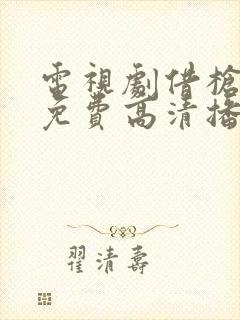 電視劇借槍
免費高清播
翟清壽